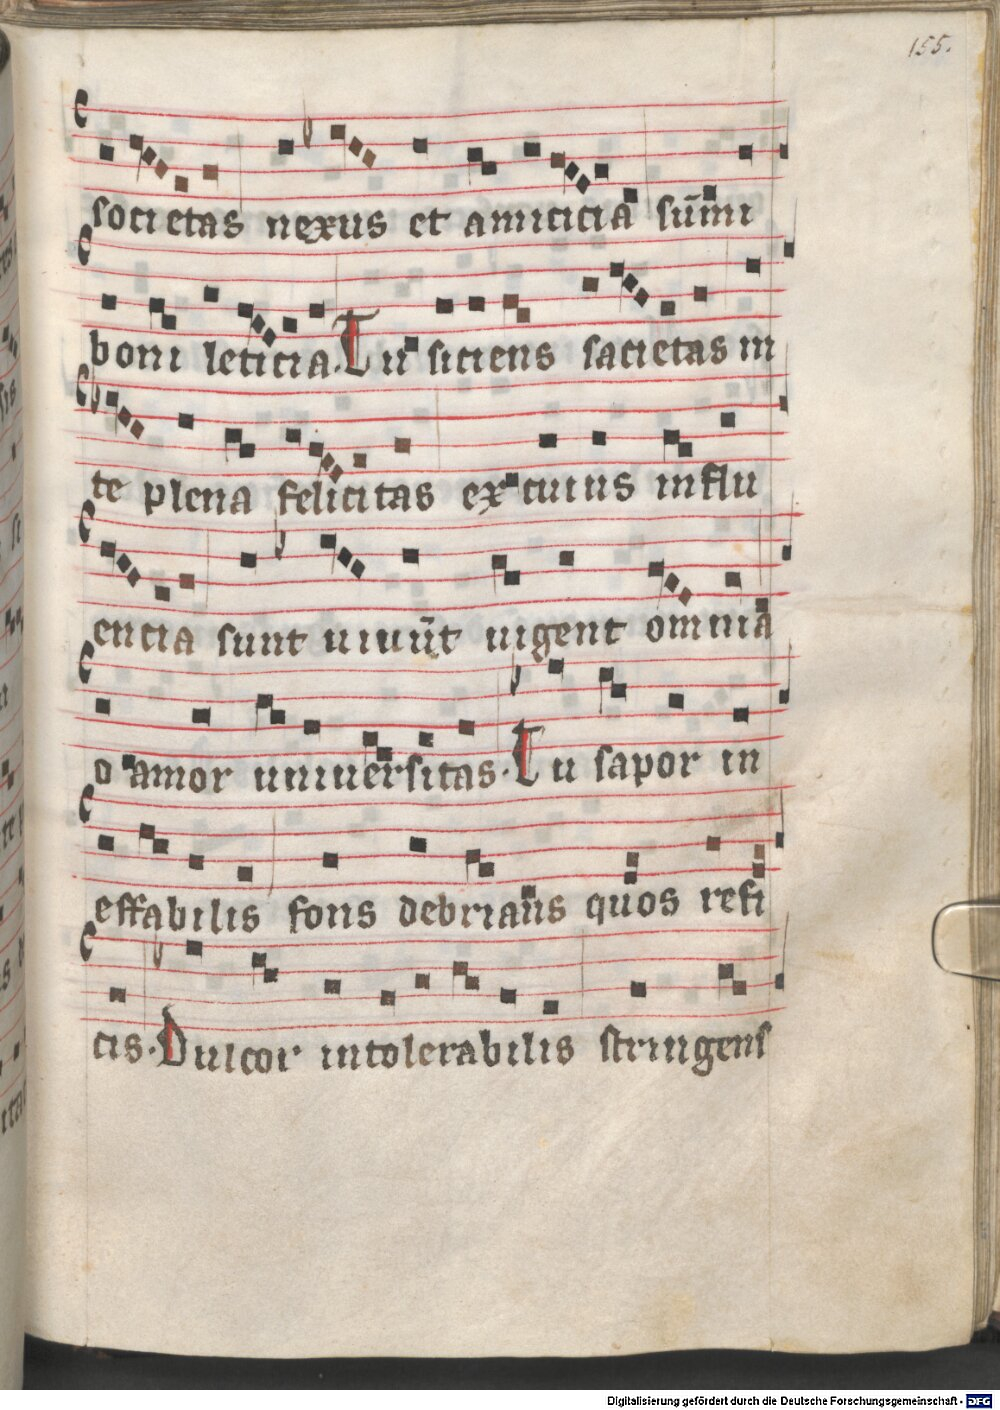 155.
societas nexus et amicicia sūmi
boni leticia. Tu siciens sacietas in
te plena felicitas ex cuius influ
encia sunt uiuūt uigent omnia
o amor uniuersitas. Tu sapor in
effabilis fons debrians quos refi
cis. Dulcor intolerabilis stringens
Digitalisierung gefördert durch die Deutsche Forschungsgemeinschaft - DFG